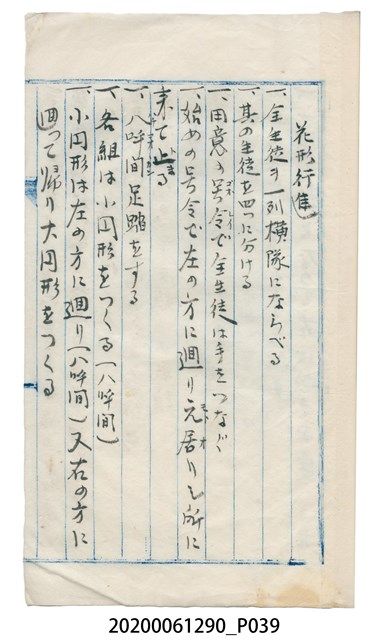 花形行進
一、全生徒ヲ一列横隊にならべる
一、其の生徒を四つに分ける
一、用意の号令で全生徒は手をつなぐ
一、始めの号令で左の方に廻り元居りし所に
来て止まる
一、八呼間足踏をする
一、各組は小円形をつくる(八呼間)
一、小円形は左の方に廻り(八呼間)又右の方に
廻って帰り大円形をつくる
20200061290_P039